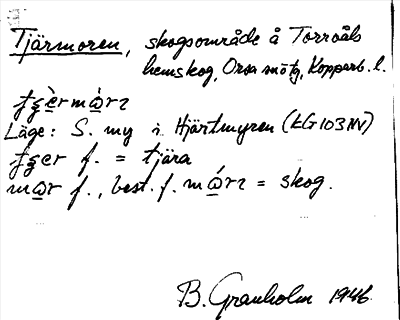 Tjärmoren, skogsområde å Torroåls
hemskog, Orsa sn ötg, Kopparb. l.
Läge: S. my i. Hjärtmyren (EG103NV)
f. = tjära
f., best. f. = skog.
B. Granholm 1946